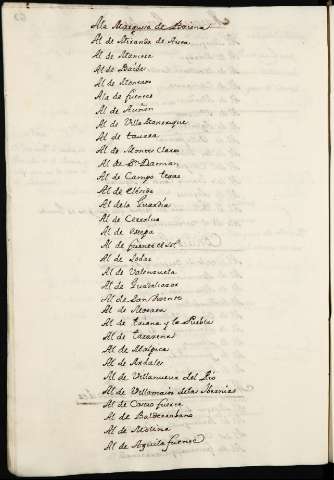 A la Marquesa de Bariena
Al de Miranda de Auta
Al de Mancera
Al de Baides
Al de Moncaro
A la de fuentes
Al de Auñon
Al de Villa Manrrique
Al de tavara
Al de Montes Claros
Al de Sn Damian
Al de Campo texar
Al de
Al de la Guardia
Al de Cerralvo
Al de estepa
Al de fuente el Sol
Al de Sodar
Al de Valenzuela
Al de Guadalcazar
Al de San Vicente
Al de Navarra
Al de triana y la Puebla
Al de tarazena
Al de Malpica
Al de Ardales
Al de Villanueva del Rio
Al de Villamaina de las Ybernias
Al de Castro fuerte
Al de Baldecarabano
Al de Molina
Al de Aguila fuente